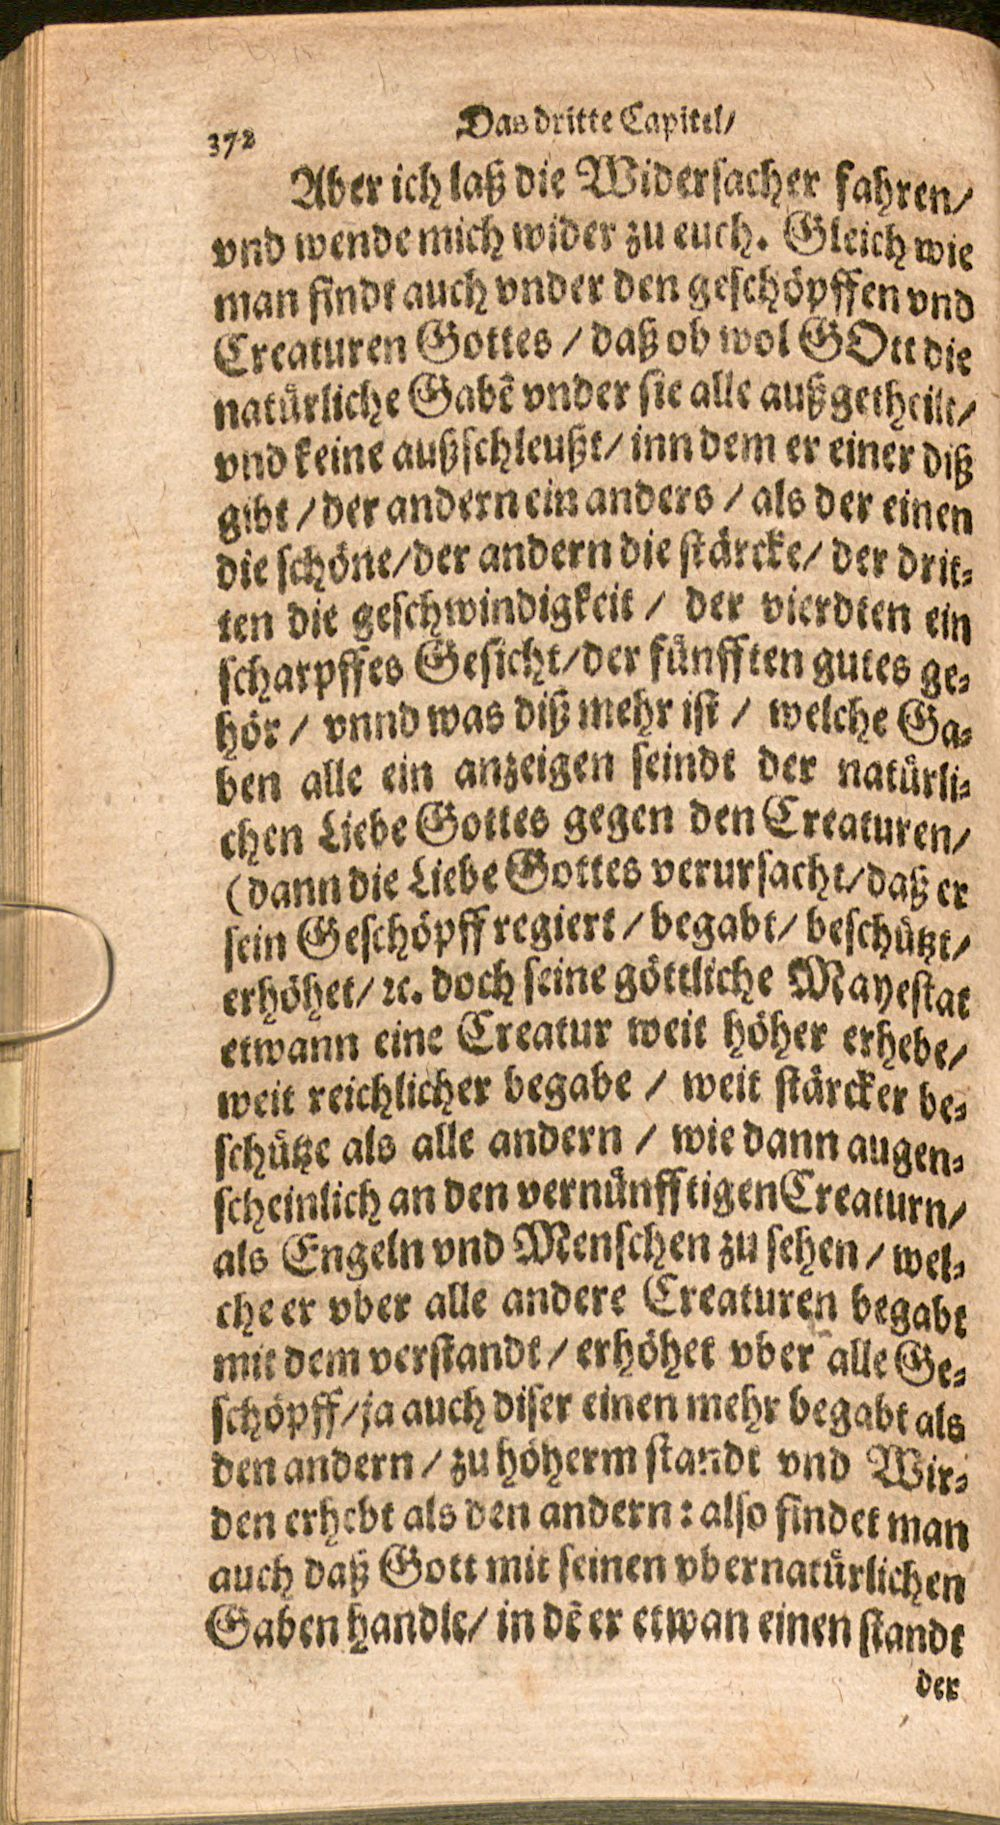 372
Das dritte Capitel/
Aber ich laß die Widersacher fahren/
vnd wende mich wider zu euch. Gleich wie
man findt auch vnder den geschöpffen vnd
Creaturen Gottes / daß ob wol GOtt die
natürliche Gabẽ vnder sie alle außgetheilt/
vnd keine außschleußt/ inn dem er einer diß
gibt / der andern ein anders / als der einen
die schöne/der andern die stärcke/ der drit-
ten die geschwindigkeit / der vierdten ein
scharpffes Gesicht/der fünfften gutes ge-
hör / vnnd was diß mehr ist / welche Ga-
ben alle ein anzeigen seindt der natürli-
chen Liebe Gottes gegen den Creaturen/
(dann die Liebe Gottes verursacht/daß er
sein Geschöpff regiert / begabt/ beschützt/
erhöhet/ ꝛc. doch seine göttliche Mayestat
etwann eine Creatur weit höher erhebe/
weit reichlicher begabe / weit stärcker be-
schütze als alle andern / wie dann augen-
scheinlich an den vernünfftigen Creaturn/
als Engeln vnd Menschen zu sehen / wel-
che er vber alle andere Creaturen begabt
mit dem verstandt / erhöhet vber alle Ge-
schöpff/ja auch diser einen mehr begabt als
den andern / zu höherm standt vnd Wir-
den erhebt als den andern : also findet man
auch daß Gott mit seinen vbernatürlichen
Gaben handle/ in dẽ er etwan einen standt
der